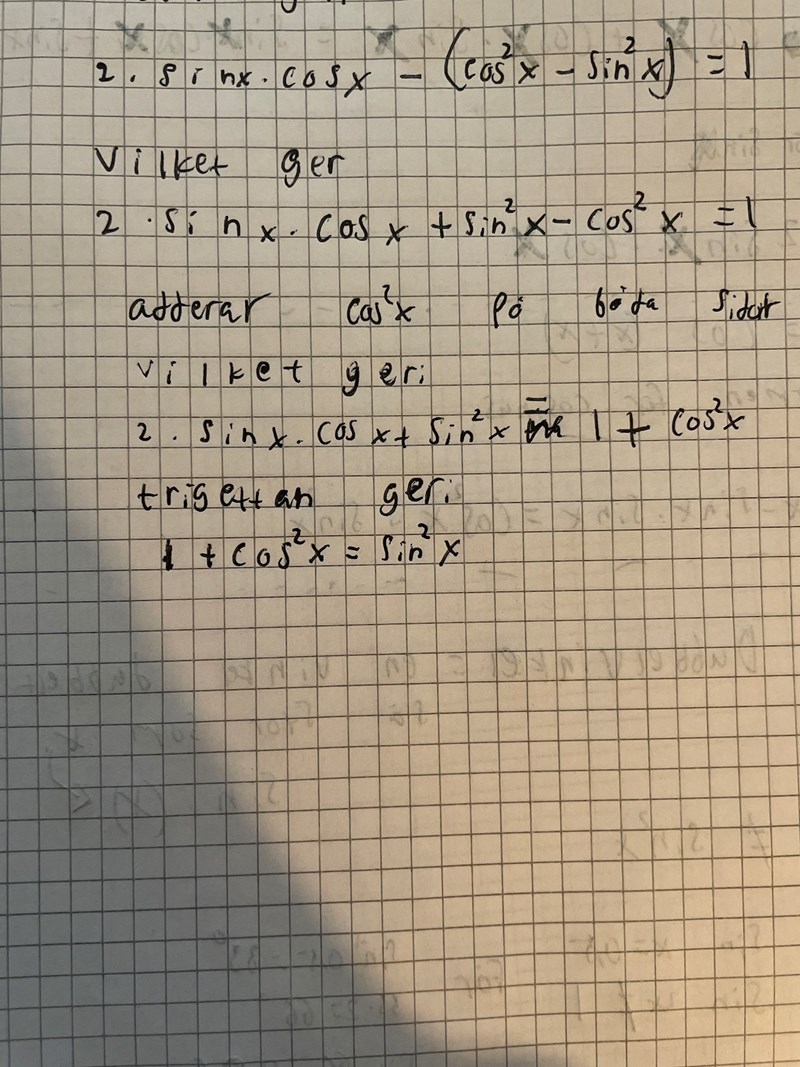 2 · sinx · cosx − (cos²x − sin²x) = 1
Vilket ger
2 · sinx · cosx + sin²x − cos²x = 1
adderar cos²x på båda sidor
vilket ger:
2 · sinx · cosx + sin²x = 1 + cos²x
trigettan ger:
1 + cos²x = sin²x